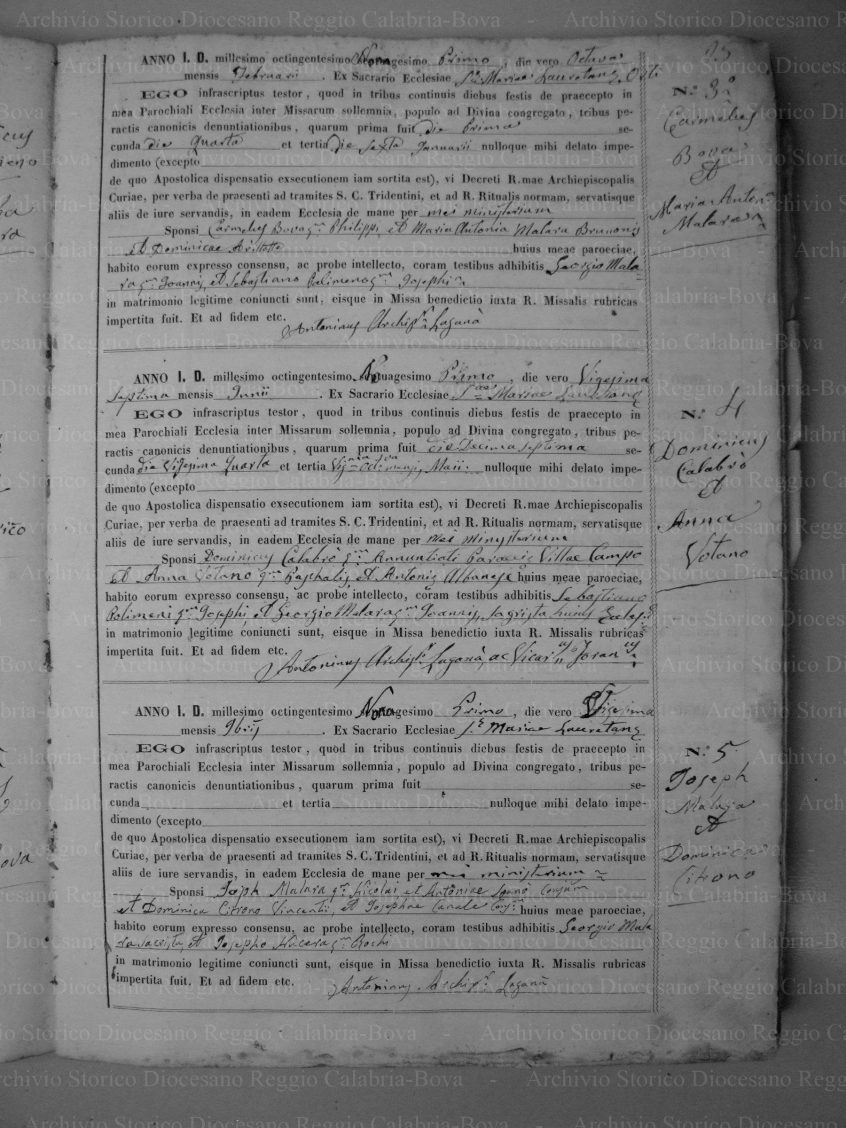 Archivio Storico Diocesano Reggio Calabria-Bova
ANNO I. D. millesimo octingentesimo Nonagesimo Primo, die vero Octava
mensis Februarii. Ex Sacrario Ecclesiae S. Mariae Lauretanae
EGO infrascriptus testor, quod in tribus continuis diebus festis de praecepto in
mea Parochiali Ecclesia inter Missarum sollemnia, populo ad Divina congregato, tribus pe-
ractis canonicis denuntiationibus, quarum prima fuit die Prima se-
cunda die Quarta et tertia die Sexta Januarii nulloque mihi delato impe-
dimento (excepto
de quo Apostolica dispensatio exsecutionem iam sortita est), vi Decreti R.mae Archiepiscopalis
Curiae, per verba de praesenti ad tramites S. C. Tridentini, et ad R. Ritualis normam, servatisque
aliis de iure servandis, in eadem Ecclesia de mane per mei ministerium
Sponsi Carmelus Bova qm Philippi, et Maria Antonia Malara Brunonis
et Dominicae huius meae paroeciae,
habito eorum expresso consensu, ac probe intellecto, coram testibus adhibitis Georgio Mala
ra qm Joannis, et Sebastiano Polimeno qm Josephi
in matrimonio legitime coniuncti sunt, eisque in Missa benedictio iuxta R. Missalis rubricas
impertita fuit. Et ad fidem etc.
Antoninus Archip.r Laganà
N.º 3º
Carmelus
Bova
et
Maria Anton.a
Malara
ANNO I. D. millesimo octingentesimo Nonagesimo Primo, die vero Vigesima
septima mensis Junii. Ex Sacrario Ecclesiae S. Mariae Lauretanae
EGO infrascriptus testor, quod in tribus continuis diebus festis de praecepto in
mea Parochiali Ecclesia inter Missarum sollemnia, populo ad Divina congregato, tribus pe-
ractis canonicis denuntiationibus, quarum prima fuit die Decima septima se-
cunda die Vigesima Quarta et tertia Maii nulloque mihi delato impe-
dimento (excepto
de quo Apostolica dispensatio exsecutionem iam sortita est), vi Decreti R.mae Archiepiscopalis
Curiae, per verba de praesenti ad tramites S. C. Tridentini, et ad R. Ritualis normam, servatisque
aliis de iure servandis, in eadem Ecclesia de mane per mei ministerium
Sponsi Dominicus Calabrò qm Annuntiati Villae Campo
et Anna Votano qm Paschalis, et Antoniae Albanese huius meae paroeciae,
habito eorum expresso consensu, ac probe intellecto, coram testibus adhibitis Sebastiano
Polimeni qm Josephi, et Georgio Malara qm Joannis, sagrista huius
in matrimonio legitime coniuncti sunt, eisque in Missa benedictio iuxta R. Missalis rubricas
impertita fuit. Et ad fidem etc.
Antoninus Archip.r Laganà, ac Vicar.us Foran.us
N.º 4
Dominicus
Calabrò
et
Anna
Votano
ANNO I. D. millesimo octingentesimo Nonagesimo Primo, die vero Vigesima
mensis 9brij. Ex Sacrario Ecclesiae S. Mariae Lauretanae
EGO infrascriptus testor, quod in tribus continuis diebus festis de praecepto in
mea Parochiali Ecclesia inter Missarum sollemnia, populo ad Divina congregato, tribus pe-
ractis canonicis denuntiationibus, quarum prima fuit se-
cunda et tertia nulloque mihi delato impe-
dimento (excepto
de quo Apostolica dispensatio exsecutionem iam sortita est), vi Decreti R.mae Archiepiscopalis
Curiae, per verba de praesenti ad tramites S. C. Tridentini, et ad R. Ritualis normam, servatisque
aliis de iure servandis, in eadem Ecclesia de mane per mei ministerium
Sponsi Joseph Malara qm Nicolai et Antoniae
et Dominica Citrono Vincentii, et Josephae Canale huius meae paroeciae,
habito eorum expresso consensu, ac probe intellecto, coram testibus adhibitis Georgio Mala
ra et Josepho Nocera qm Rochi
in matrimonio legitime coniuncti sunt, eisque in Missa benedictio iuxta R. Missalis rubricas
impertita fuit. Et ad fidem etc.
Antoninus Archip.r Laganà
N.º 5
Joseph
Malara
et
Dominica
Citrono